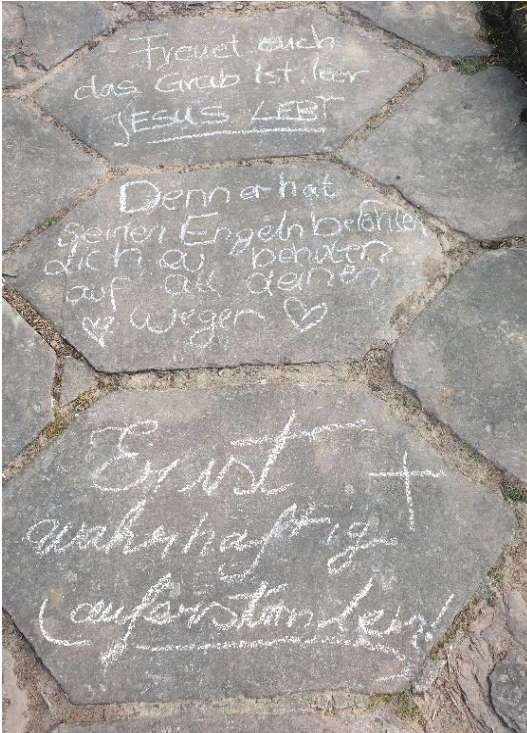 Freuet euch
das Grab ist leer
JESUS LEBT
Denn er hat
seinen Engeln befohlen
dich zu behüten
auf all deinen
Wegen
Er ist
wahrhaftig
auferstanden!